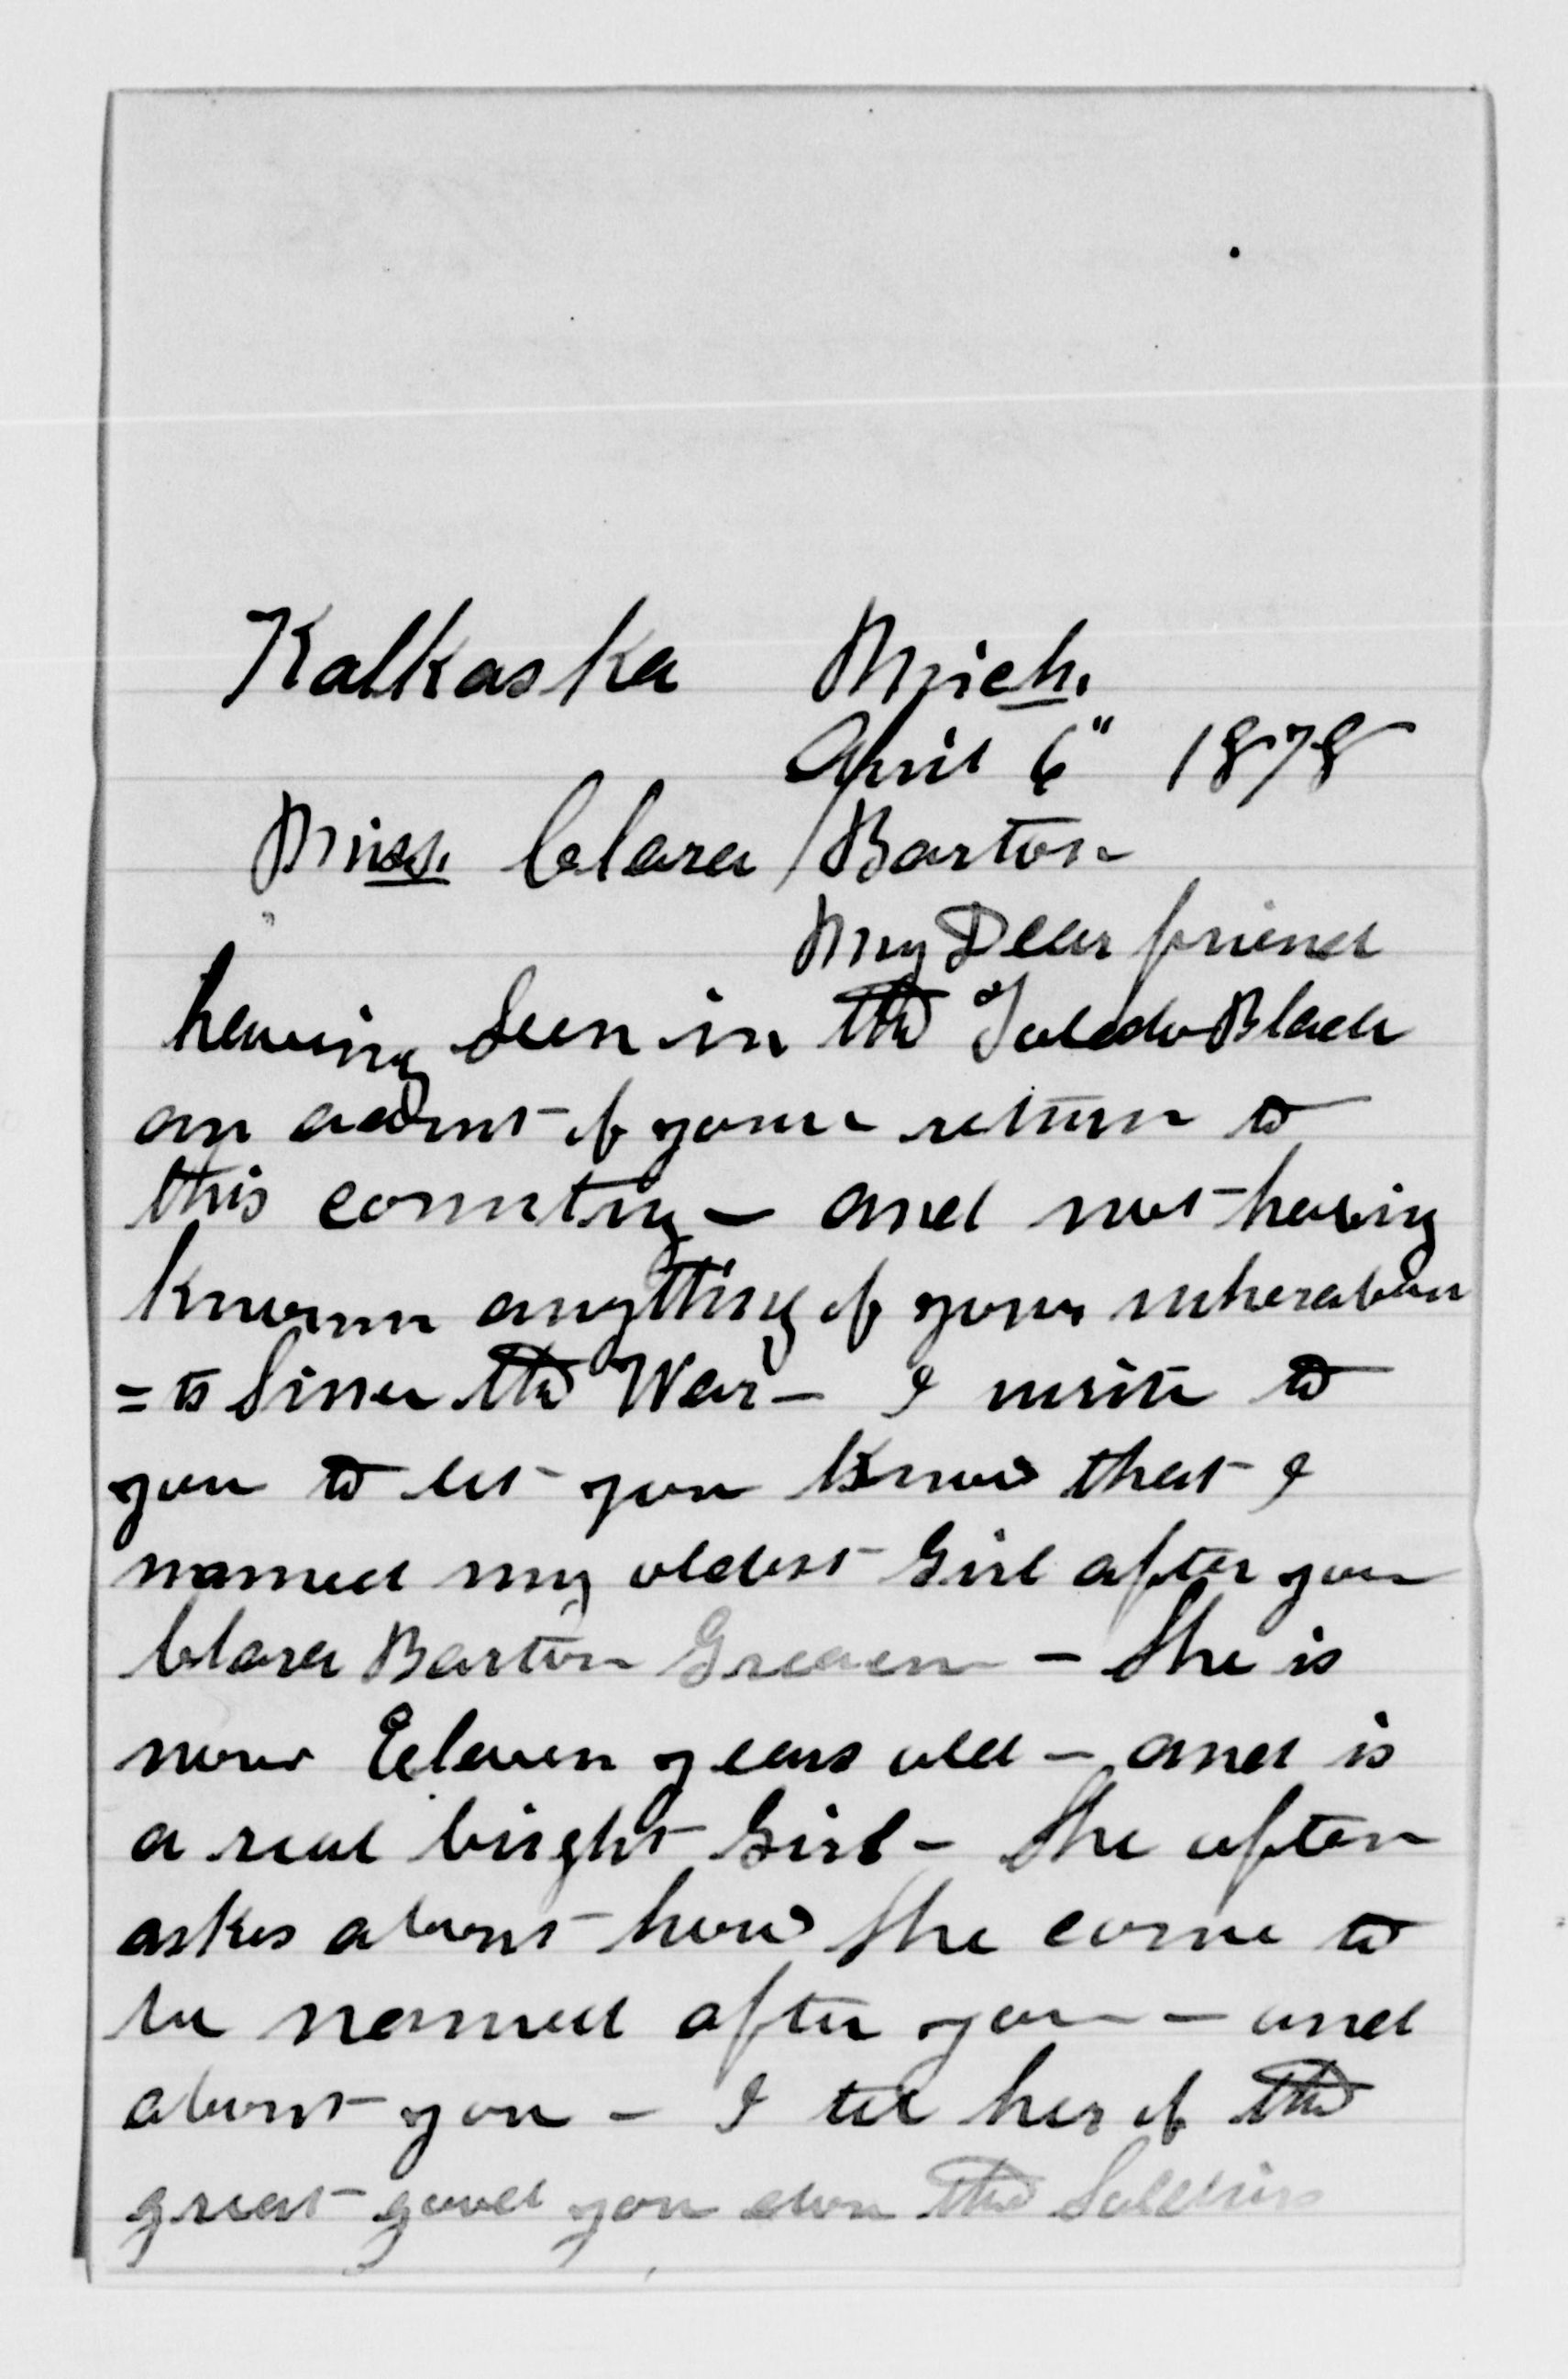 Kalkaska Mich.
April 6" 1878
Miss. Clara Barton
My Dear friend
having Seen in the Toledo Blade
an acount of your return to
this country - and not having
known anything of your wherabou
=ts Since the War - I write to
you to let you know that I
named my oldest Girl after you
Clara Barton - She is
now Eleven years old - and is
a real bright Girl - She often
askes about how She come to
be named after you - and
about you - I tel her of the
great good you don the Soldiers